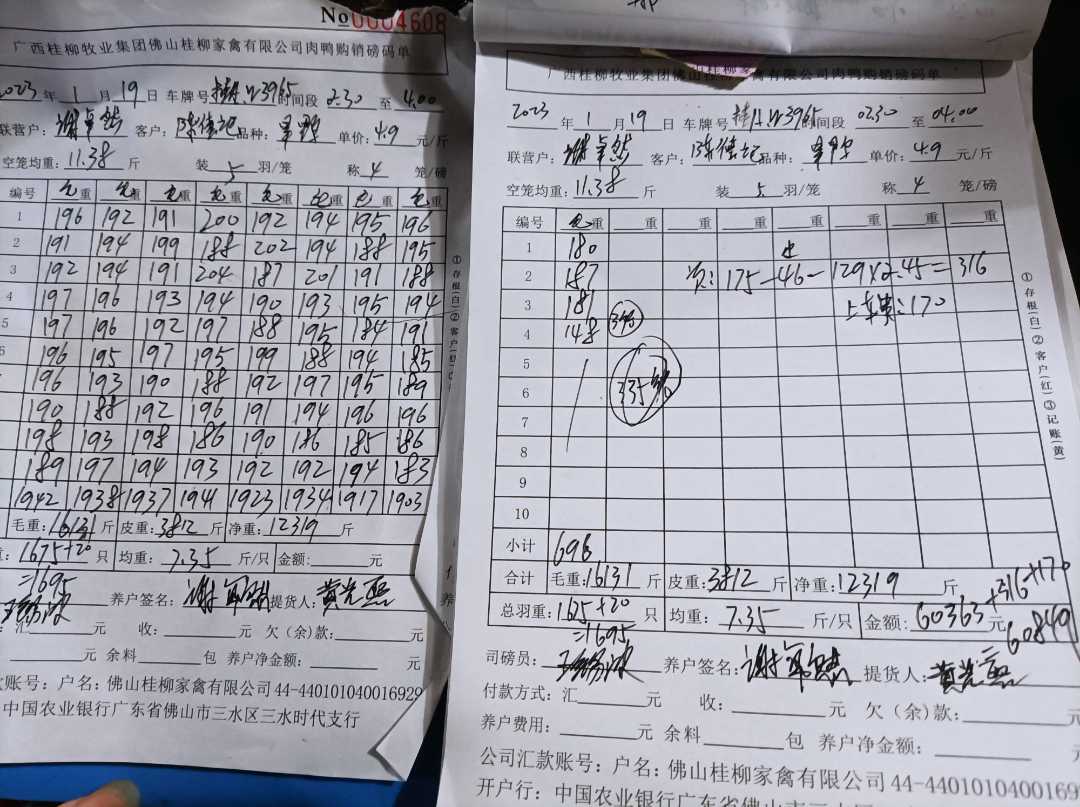 No0004608
广西桂柳牧业集团佛山桂柳家禽有限公司肉鸭购销磅码单
2023年1月19日 车牌号 3965时间段 2.30至4.00
联营户: 客户: 陈佳记品种: 单价:4.9元/斤
空笼均重:11.38斤 装5羽/笼 称4笼/磅
编号 毛重 毛重 毛重 毛重 毛重 毛重 毛重 毛重
1 196 192 191 200 192 194 195 196
2 191 194 199 188 202 194 188 195
3 192 194 191 204 187 201 191 188
4 197 196 193 194 190 193 195 194
5 197 196 192 197 188 195 184 191
196 195 197 195 199 188 194 185
196 193 190 188 192 197 195 189
190 188 192 196 191 194 196 196
198 193 198 186 190 186 185 186
189 197 194 193 192 192 194 183
1942 1938 1937 1941 1923 1934 1917 1903
毛重:16131斤 皮重:3812斤 净重:12319斤
1675+20只 均重:7.35斤/只 金额:元
=1695
养户签名: 提货人:黄光
汇元 收:元 欠(余)款:元
元 余料包 养户净金额:元
账号: 户名:佛山桂柳家禽有限公司 44-440101040016929
中国农业银行广东省佛山市三水区三水时代支行
①存根(白)②客户
广西桂柳牧业集团佛山桂柳家禽有限公司肉鸭购销磅码单
2023年1月19日 车牌号 3965时间段 0230至04.00
联营户: 客户: 陈佳记品种: 单价:4.9元/斤
空笼均重:11.38斤 装5羽/笼 称4笼/磅
编号 毛重 重 重 重 重 重 重 重
1 180
2 187 175-46=129×2.45=316
3 181 上车费:170
4 148
5
6 335笼
7
8
9
10
小计 696
合计 毛重:16131斤 皮重:3812斤 净重:12319斤
总羽重:1675+20只 均重:7.35斤/只 金额:60363元+316+170
=1695 =60849
司磅员: 养户签名: 提货人:黄光
付款方式:汇元 收:元 欠(余)款:
养户费用:元 余料包 养户净金额:
公司汇款账号:户名:佛山桂柳家禽有限公司 44-4401010400169
开户行:中国农业银行广东省佛山市三水区
①存根(白)②客户(红)③记账(黄)